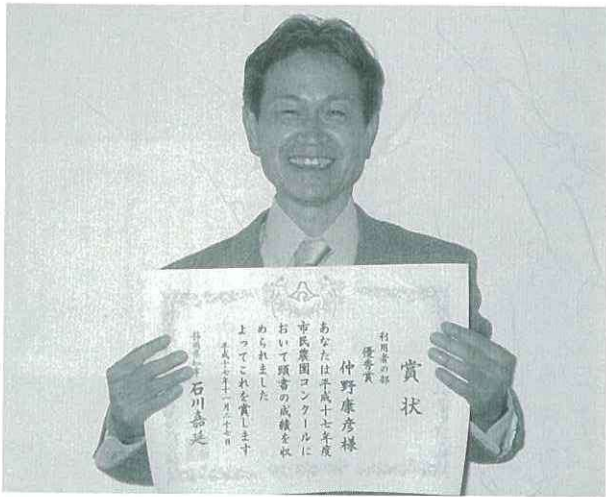 賞状
利用者の部
優秀賞
仲野康彦様
あなたは平成十七年度
市民農園コンクールに
おいて頭書の成績を収
められました
よってこれを賞します
平成十七年十一月二十七日
石川嘉延